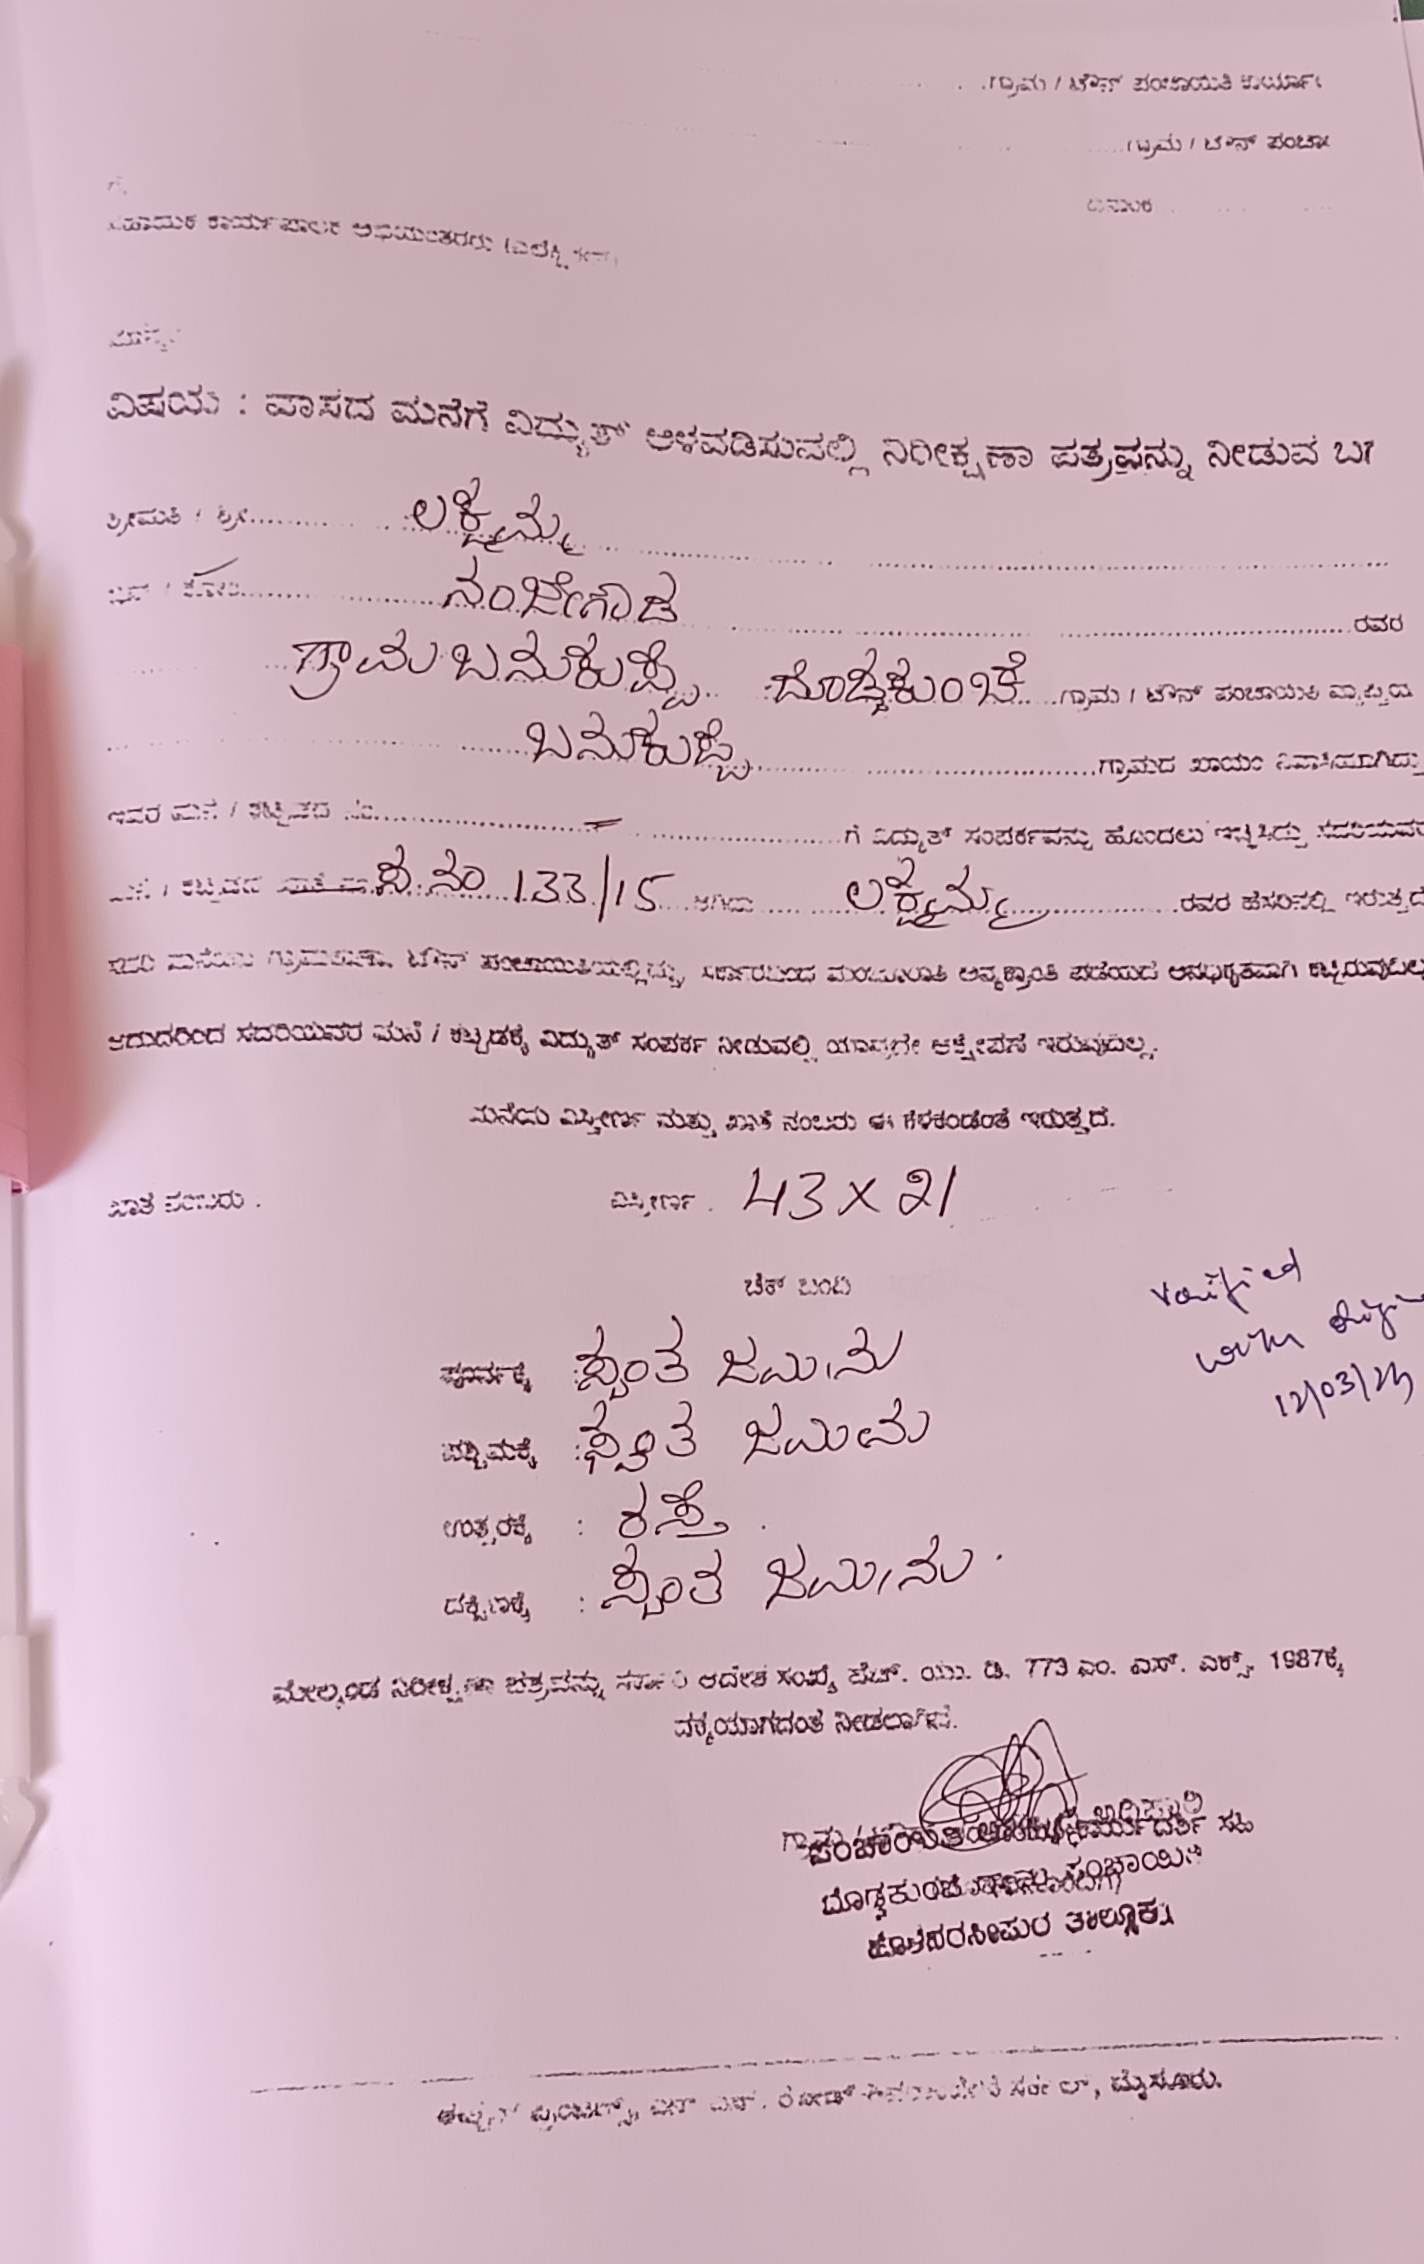 ಗ್ರಾಮ / ಟೌನ್ ಪಂಚಾಯಿತಿ ಕಾರ್ಯಾ
ಗ್ರಾಮ / ಟೌನ್ ಪಂಚಾ
ದಿನಾಂಕ
ಗೆ,
ಸಹಾಯಕ ಕಾರ್ಯಪಾಲಕ ಅಭಿಯಂತರರು
ಮಾನ್ಯರೆ
ವಿಷಯ : ವಾಸದ ಮನೆಗೆ ವಿದ್ಯುತ್ ಅಳವಡಿಸುವಲ್ಲಿ ನಿರೀಕ್ಷಣಾ ಪತ್ರವನ್ನು ನೀಡುವ ಬಗ
ಶ್ರೀಮತಿ / ಶ್ರೀ ಲಕ್ಷ್ಮಮ್ಮ
ಬಿನ್ / ಕೋಂ ನಂಜೇಗೌಡ ರವರ
ಗ್ರಾಮ ಬನುಕುಪ್ಪೆ ದೊಡ್ಡಕುಂಚೆ ಗ್ರಾಮ / ಟೌನ್ ಪಂಚಾಯಿತಿ ವ್ಯಾಪ್ತಿಯ
ಬನುಕುಪ್ಪೆ ಗ್ರಾಮದ ಖಾಯಂ ನಿವಾಸಿಯಾಗಿದ್ದು
ಇವರ ಮನೆ / ಕಟ್ಟಡದ ನಂ. ಗೆ ವಿದ್ಯುತ್ ಸಂಪರ್ಕವನ್ನು ಹೊಂದಲು ಇಚ್ಛಿಸಿದ್ದು ಸದರಿಯವರ
ಮನೆ / ಕಟ್ಟಡದ ಸ.ನಂ 133/15 ಆಗಿದ್ದು ಲಕ್ಷ್ಮಮ್ಮ ರವರ ಹೆಸರಿನಲ್ಲಿ ಇರುತ್ತದೆ
ಸದರಿ ಮನೆಯು ಗ್ರಾಮಠಾಣಾ, ಟೌನ್ ಪಂಚಾಯಿತಿಯಲ್ಲಿದ್ದು, ಸರ್ಕಾರದಿಂದ ಮಂಜೂರಾತಿ ಅನ್ಯಕ್ರಾಂತಿ ಪಡೆಯದೆ ಅನಧಿಕೃತವಾಗಿ ಕಟ್ಟಿರುವುದಿಲ್ಲ
ಆದುದರಿಂದ ಸದರಿಯವರ ಮನೆ / ಕಟ್ಟಡಕ್ಕೆ ವಿದ್ಯುತ್ ಸಂಪರ್ಕ ನೀಡುವಲ್ಲಿ ಯಾವುದೇ ಆಕ್ಷೇಪಣೆ ಇರುವುದಿಲ್ಲ.
ಮನೆಯ ವಿಸ್ತೀರ್ಣ ಮತ್ತು ಖಾತೆ ನಂಬರು ಈ ಕೆಳಕಂಡಂತೆ ಇರುತ್ತದೆ.
ಖಾತೆ ನಂಬರು . ವಿಸ್ತೀರ್ಣ . 43 x 21
ಚೆಕ್ ಬಂದಿ
verified
with
12/03/23
ಪೂರ್ವಕ್ಕೆ : ಸ್ವಂತ ಜಮೀನು
ಪಶ್ಚಿಮಕ್ಕೆ : ಸ್ವಂತ ಜಮೀನು
ಉತ್ತರಕ್ಕೆ : ರಸ್ತೆ .
ದಕ್ಷಿಣಕ್ಕೆ : ಸ್ವಂತ ಜಮೀನು .
ಮೇಲ್ಕಂಡ ನಿರೀಕ್ಷಣಾ ಪತ್ರವನ್ನು ಸರ್ಕಾರಿ ಆದೇಶ ಸಂಖ್ಯೆ ಹೆಚ್. ಯು. ಡಿ. 773 ಎಂ. ಎನ್. ಎಕ್ಸ್. 1987ಕ್ಕೆ
ವ್ಯತ್ಯಯವಾಗದಂತೆ ನೀಡಲಾಗಿದೆ.
ದೊಡ್ಡಕುಂಚೆ ಗ್ರಾಮ ಪಂಚಾಯಿತಿ
ಹೊಳೆನರಸೀಪುರ ತಾಲ್ಲೂಕು
ಸರ್ಕಲ್, ಮೈಸೂರು.